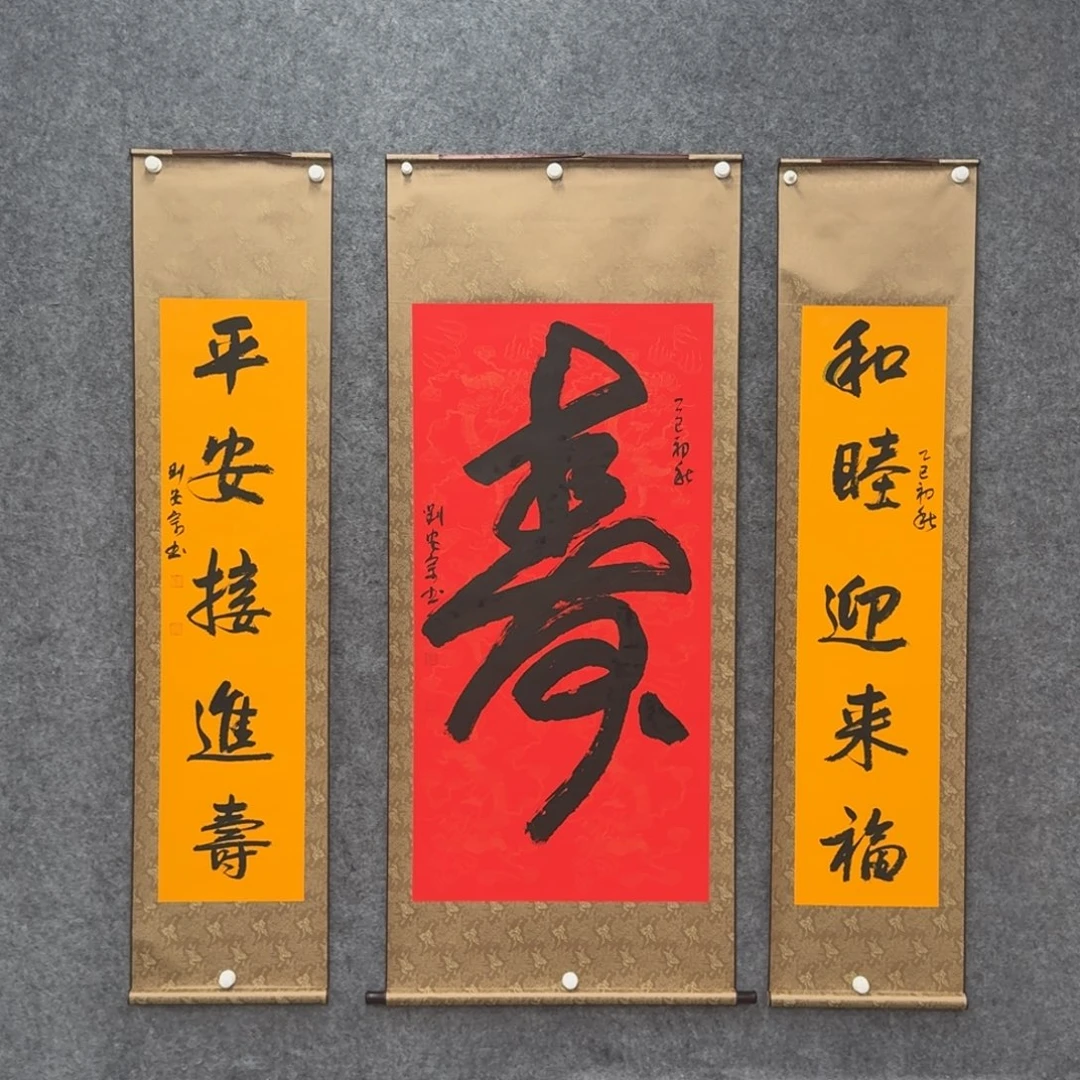 和睦迎来福
乙巳初秋
寿
乙巳初秋
劉安宗书
平安接進壽
劉安宗书